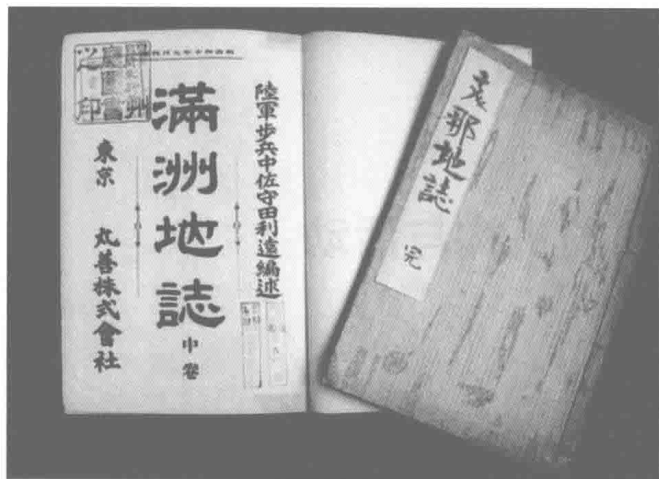 陸軍步兵中佐守田利遠編述
滿洲地誌
中卷
東京 丸善株式會社
支那地誌
完